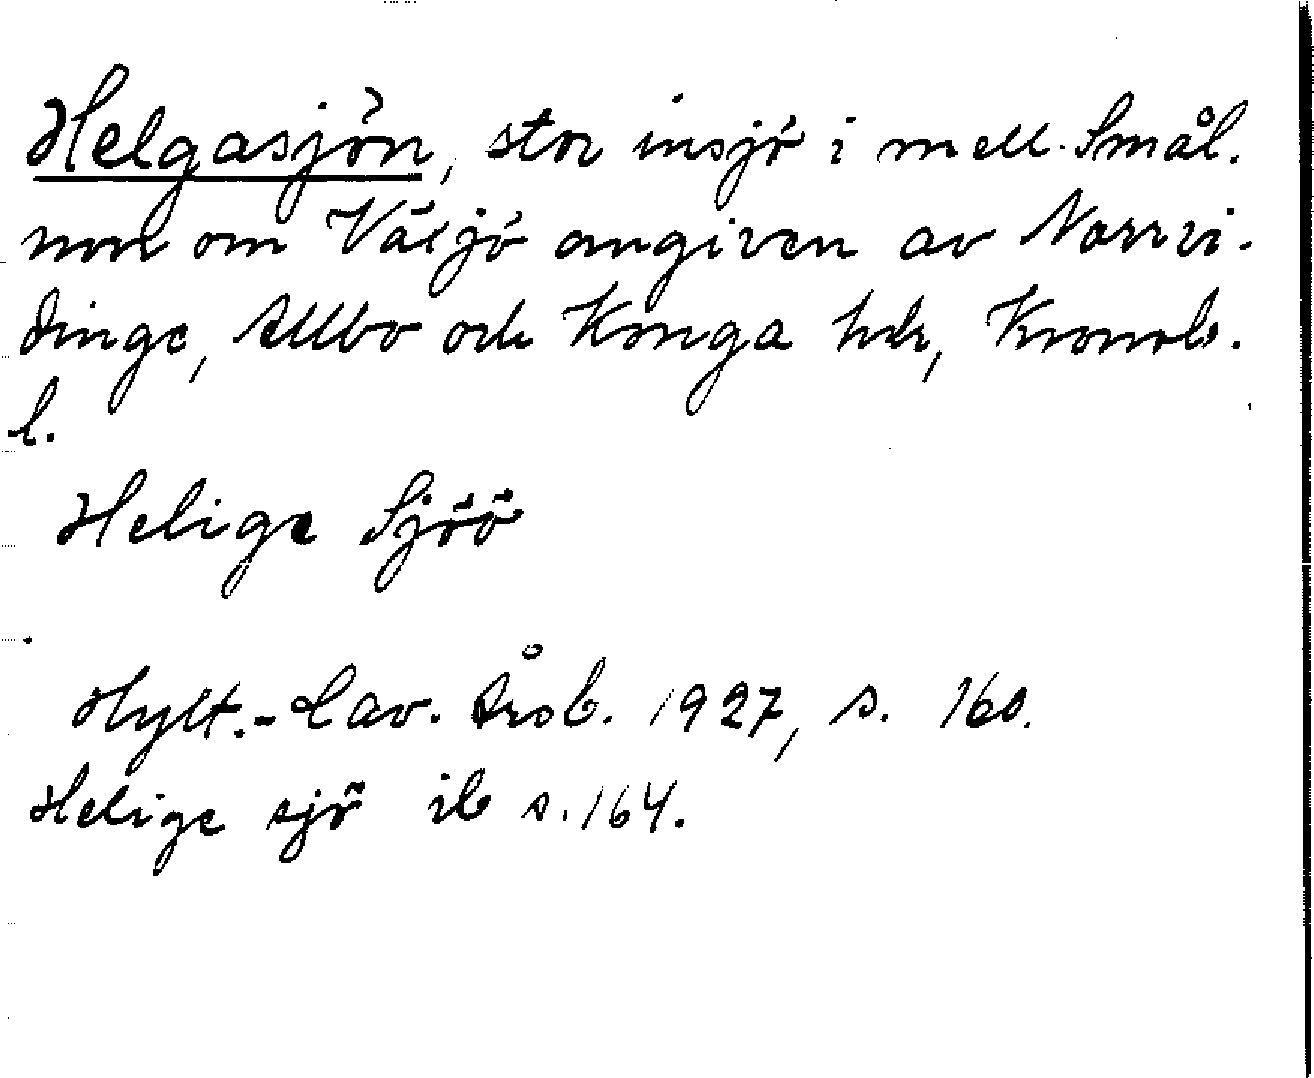 Helgasjön, stor insjö i mell. Smål.
norr om Växjö omgiven av Norrvi-
dinge, Allbo och Konga hdr, Kronob.
l.
Helige Sjöö
Hylt.-Cav. Årsb. 1927, s. 160.
Helige sjö ib s. 164.